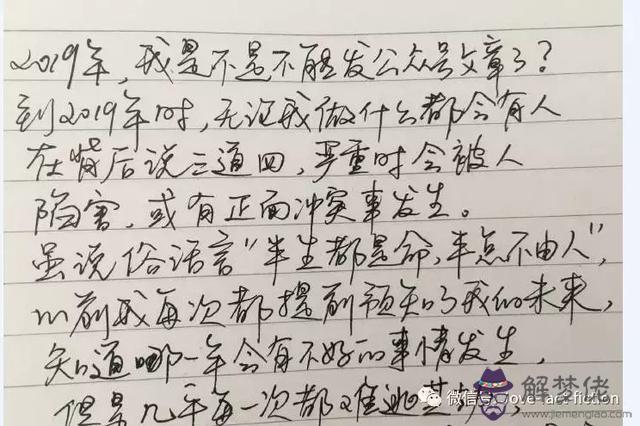 2019年,我是不是不能发公众号文章了?
到2019年时,无论我做什么都会有人
在背后说三道四,严重时会被人
陷害,或有正面冲突事发生。
虽说俗话言"半生都是命,半点不由人",
以前我每次都提前预知了我的未来,
知道哪一年会有不好的事情发生,
但是几乎每一次都难逃其
微信号:love_art_fiction
解梦佬
www.jiemenglao.com